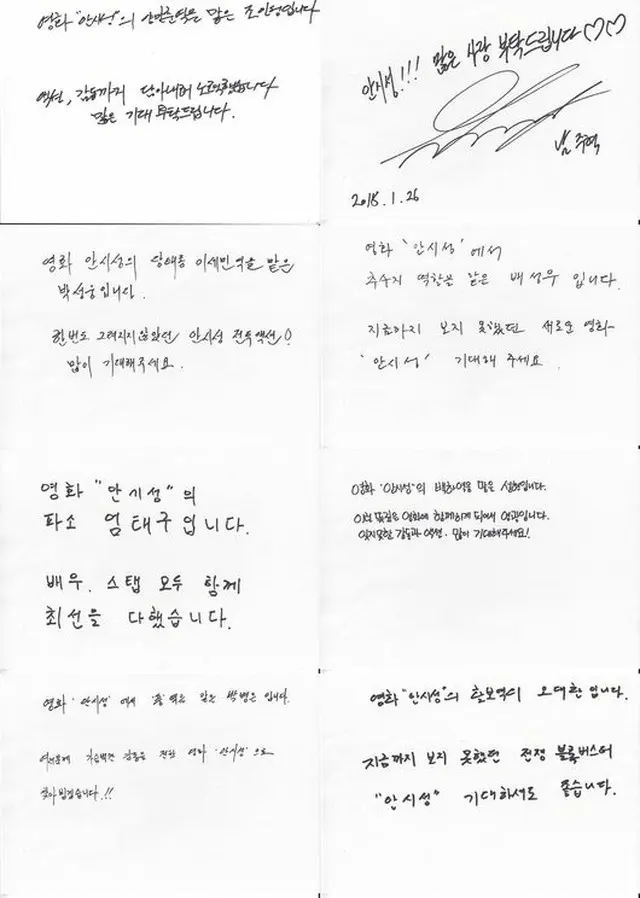 영화 "안시성"의 양만춘역을 맡은 조인성입니다
액션, 감동까지 담아내려 노력했습니다
많은 기대 부탁드립니다.
안시성!!! 많은 사랑 부탁드립니다♡♡
남주혁
2018.1.26
영화 안시성의 당태종 이세민역을 맡은
박성웅입니다.
한번도 그려지지않았던 안시성 전투액션!
많이 기대해주세요.
영화 '안시성'에서
추수지 역할을 맡은 배성우 입니다.
지금까지 보지 못했던 새로운 영화
'안시성' 기대해 주세요.
영화 "안시성"의
파소 엄태구입니다.
배우, 스탭 모두 함께
최선을 다했습니다.
영화 '안시성'의 백하역을 맡은 설현입니다.
이런 뜻깊은 영화에 함께하게 되어서 영광입니다.
잊지못할 감동과 액션. 많이 기대해주세요!
영화 '안시성' 에서 '풍'역을 맡은 박병은 입니다.
여러분께 가슴벅찬 감동을 전할 영화 '안시성'으로
찾아 뵙겠습니다.!!
영화 "안시성"의 활보역의 오대환입니다.
지금까지 보지 못했던 전쟁 블록버스터
"안시성" 기대하셔도 좋습니다.